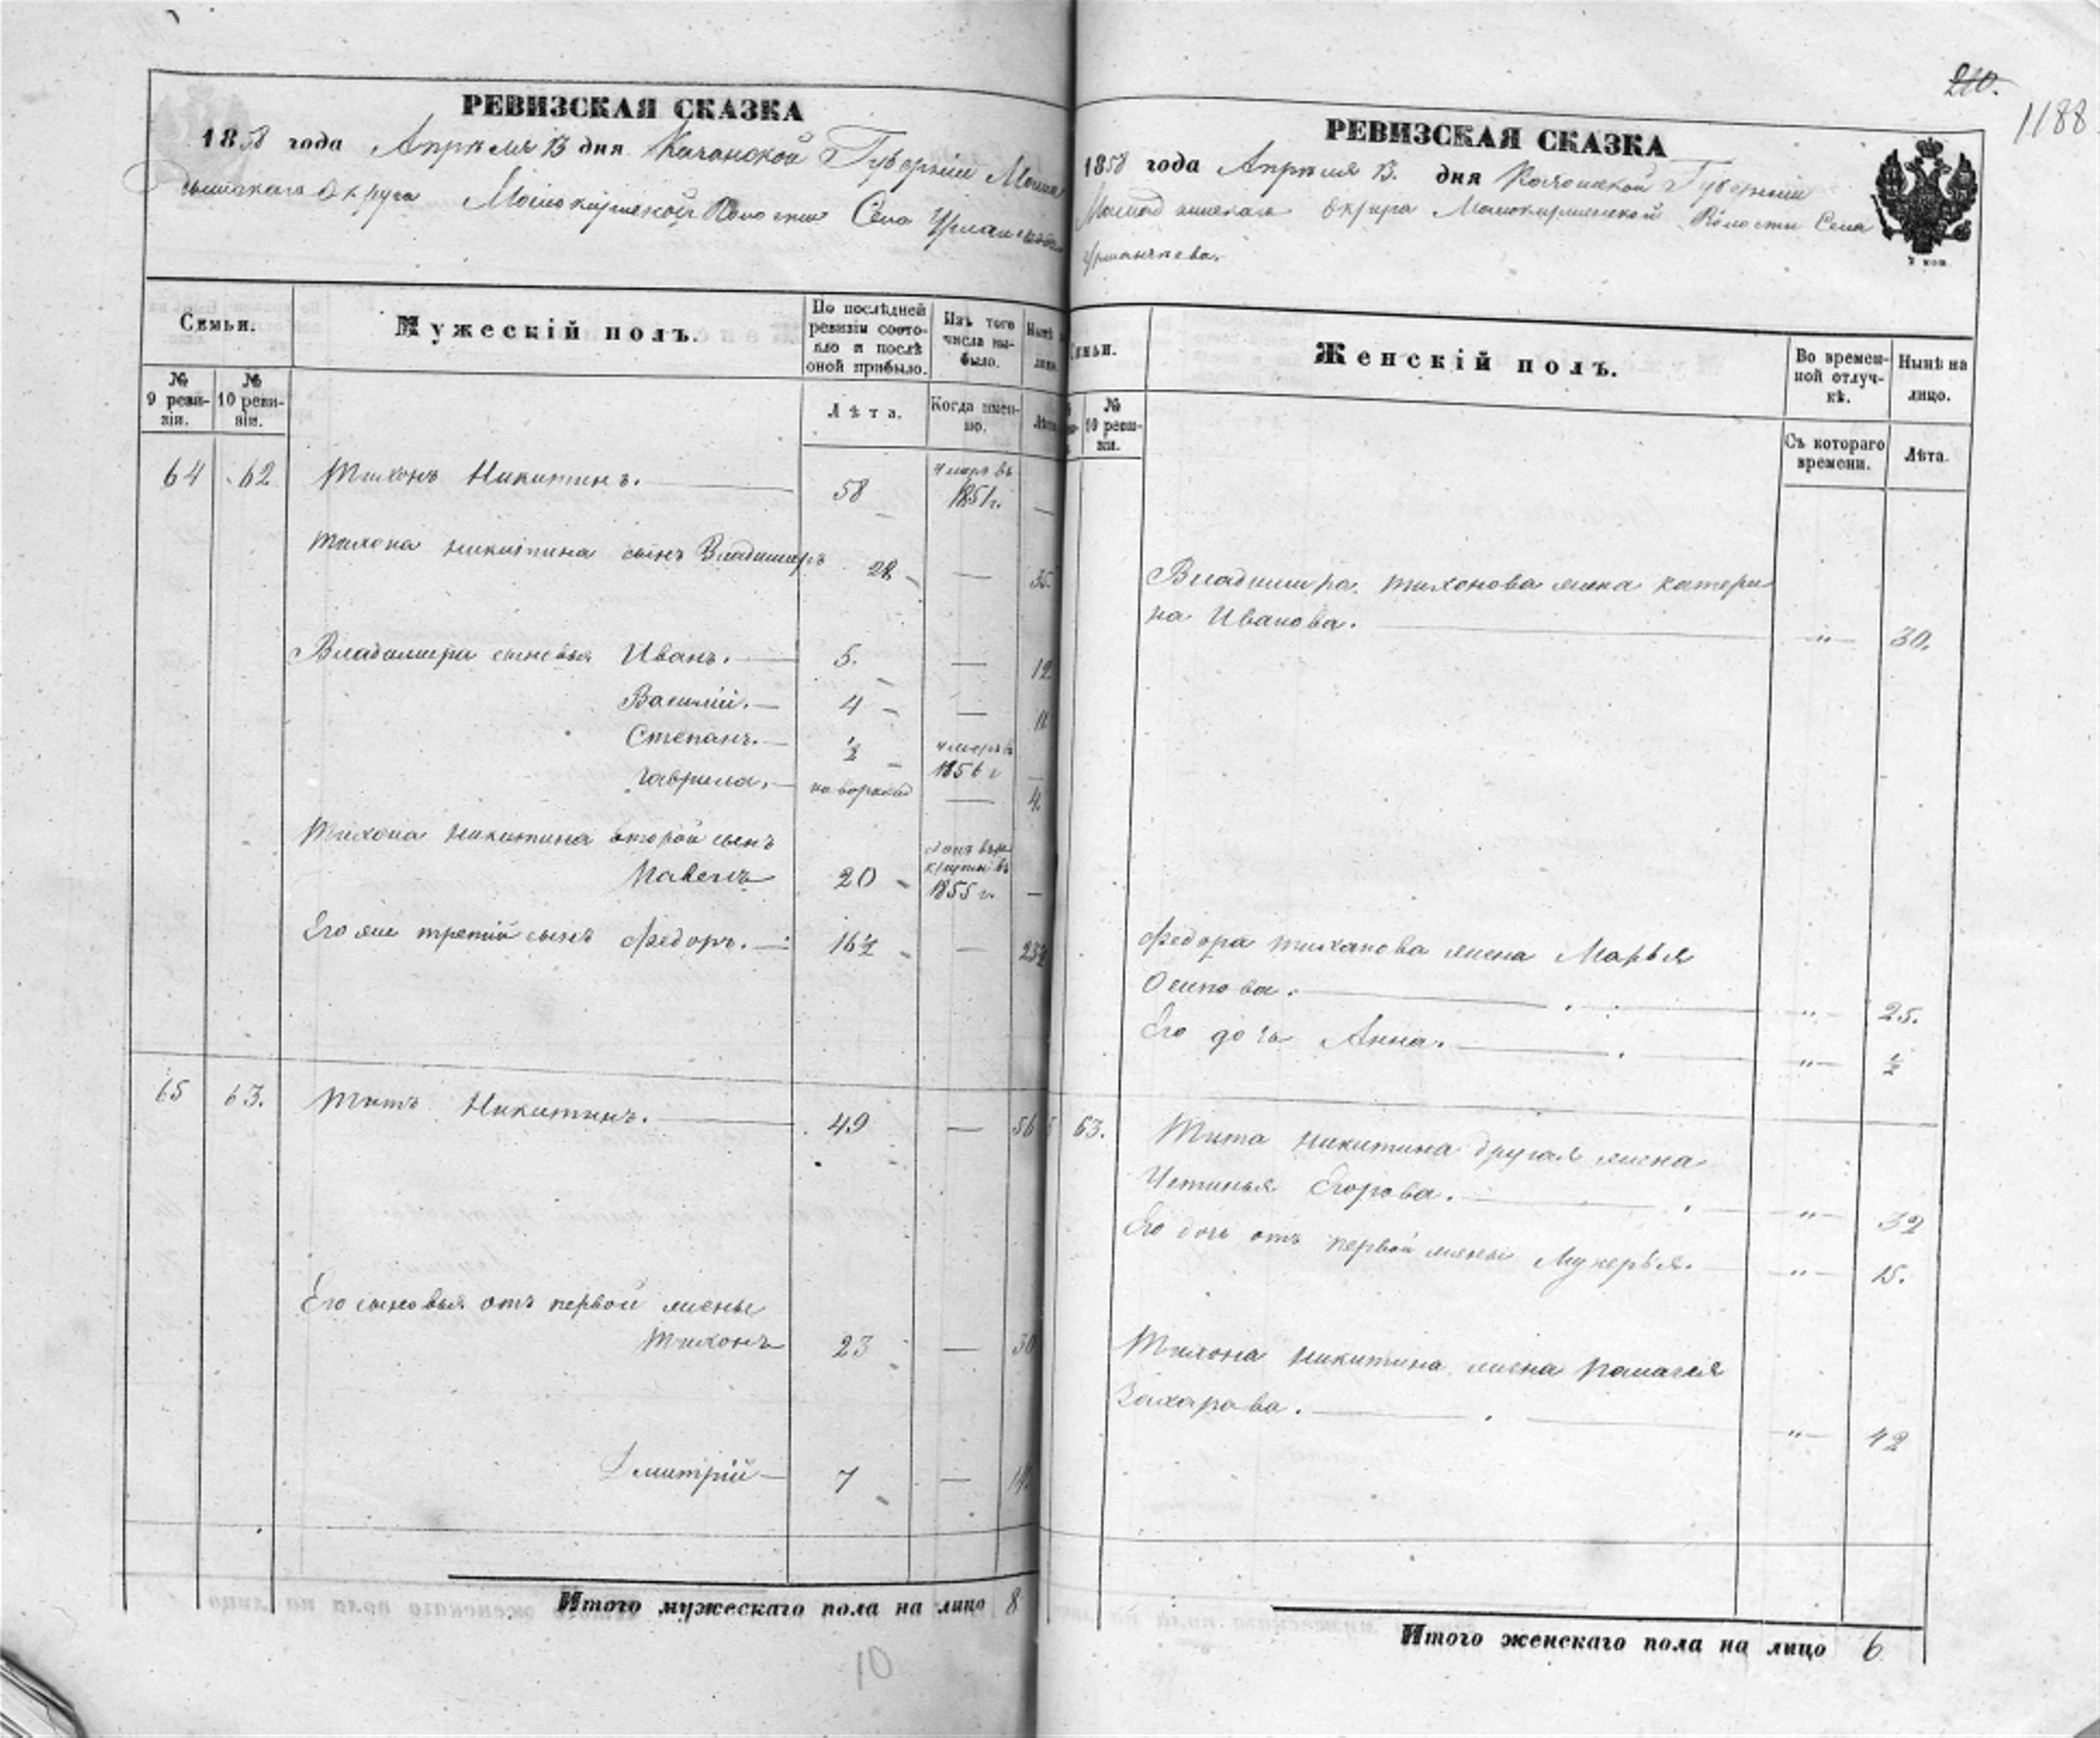 РЕВИЗСКАЯ СКАЗКА
1858 года Апреля 13 дня Казанской Губерніи Мама
дышскаго Округа Мамокирменской Волости Села
Семьи.
Мужескій полъ.
По послѣдней ревизіи состояло и послѣ оной прибыло.
Изъ того числа выбыло.
Нынѣ
№ 9 ревизіи.
№ 10 ревизіи.
Лѣта.
Когда именно.
Лѣта
64 62 Тихонъ Никитинъ. 58 умеръ въ 1851 г. —
Тихона Никитина сынъ Владимиръ 28 — 35.
Владимира сыновья Иванъ. 5. — 12
Василій. 4 — 11
Степанъ. ½ умеръ въ 1856 г —
Гаврила. новорожд — 4.
Тихона Никитина второй сынъ
Павелъ 20 въ 1855 г. —
Его же третій сынъ Федоръ. 16½ — 23½
65 63. Титъ Никитинъ. 49 — 56
Его сыновья отъ первой жены
Тихонъ 23 — 30
Дмитрій 7 — 14.
Итого мужескаго пола на лицо 8
210.
1188
РЕВИЗСКАЯ СКАЗКА
1858 года Апреля 13. дня Казанской Губерніи
Мамадышскаго Округа Мамокирменской Волости Села
Семьи.
Женскій полъ.
Во временной отлучкѣ.
Нынѣ на лицо.
№ 10 ревизіи.
Съ котораго времени.
Лѣта.
Владимира Тихонова жена Катери
на Иванова. „ 30.
Федора Тихонова жена Марья
Осипова. „ 25.
Его дочь Анна. „ ½
63. Тита Никитина другая жена
Устинья Егорова. „ 32
Его дочь отъ первой жены Лукерья. „ 15.
Тихона Никитина жена Палагея
Захарова. „ 42
Итого женскаго пола на лицо 6